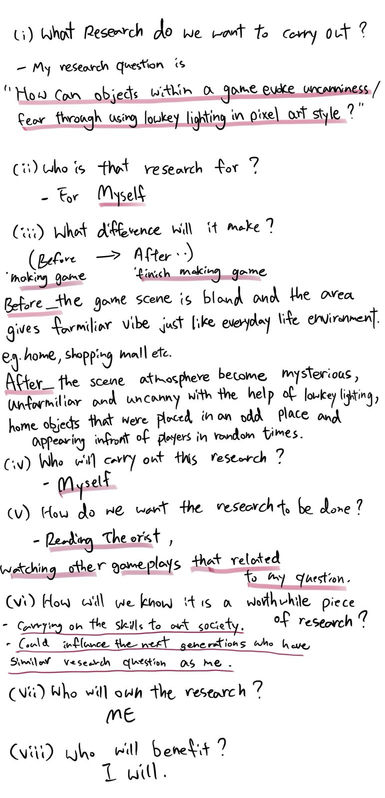 (i) What Research do we want to carry out ?
- My research question is
"How can objects within a game evoke uncanniness/
fear through using lowkey lighting in pixel art style ?"
(ii) Who is that research for ?
- For Myself
(iii) What difference will it make ?
(Before → After ··)
'making game' 'finish making game
Before_ the game scene is bland and the area
gives farmiliar vibe just like everyday life environment.
e.g. home, shopping mall etc.
After_ the scene atmosphere become mysterious,
unfarmiliar and uncanny with the help of lowkey lighting,
home objects that were placed in an odd place and
appearing infront of players in random times.
(iv) Who will carry out this research ?
- Myself
(v) How do we want the research to be done ?
- Reading Theorist,
watching other gameplays that related
to my question.
(vi) How will we know it is a worthwhile piece
of research ?
- Carrying on the skills to art society.
- Could influnce the next generations who have
similar research question as me.
(vii) Who will own the research ?
ME
(viii) Who will benefit ?
I will.